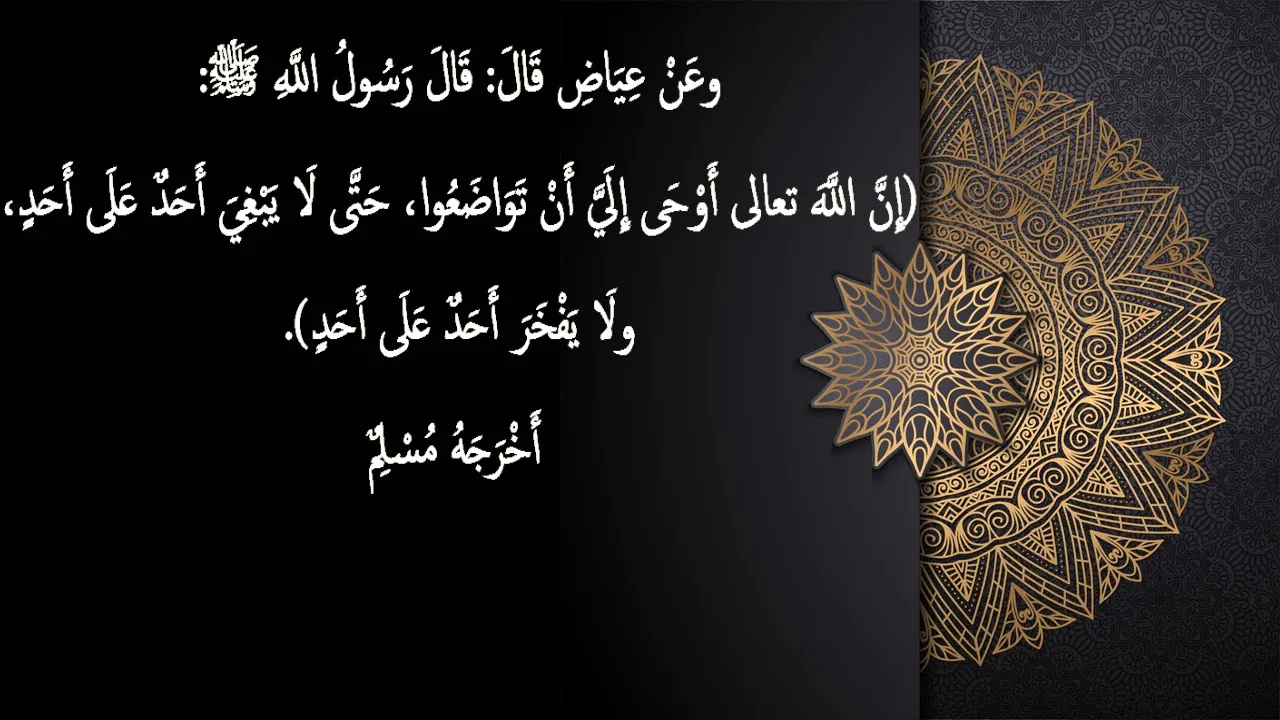 وعَنْ عِيَاضِ قَالَ: قَالَ رَسُولُ اللَّهِ ﷺ:
(إِنَّ اللَّهَ تعالى أَوْحَى إِلَيَّ أَنْ تَوَاضَعُوا، حَتَّى لَا يَبْغِيَ أَحَدٌ عَلَى أَحَدٍ،
ولَا يَفْخَرَ أَحَدٌ عَلَى أَحَدٍ).
أَخْرَجَهُ مُسْلِمٌ